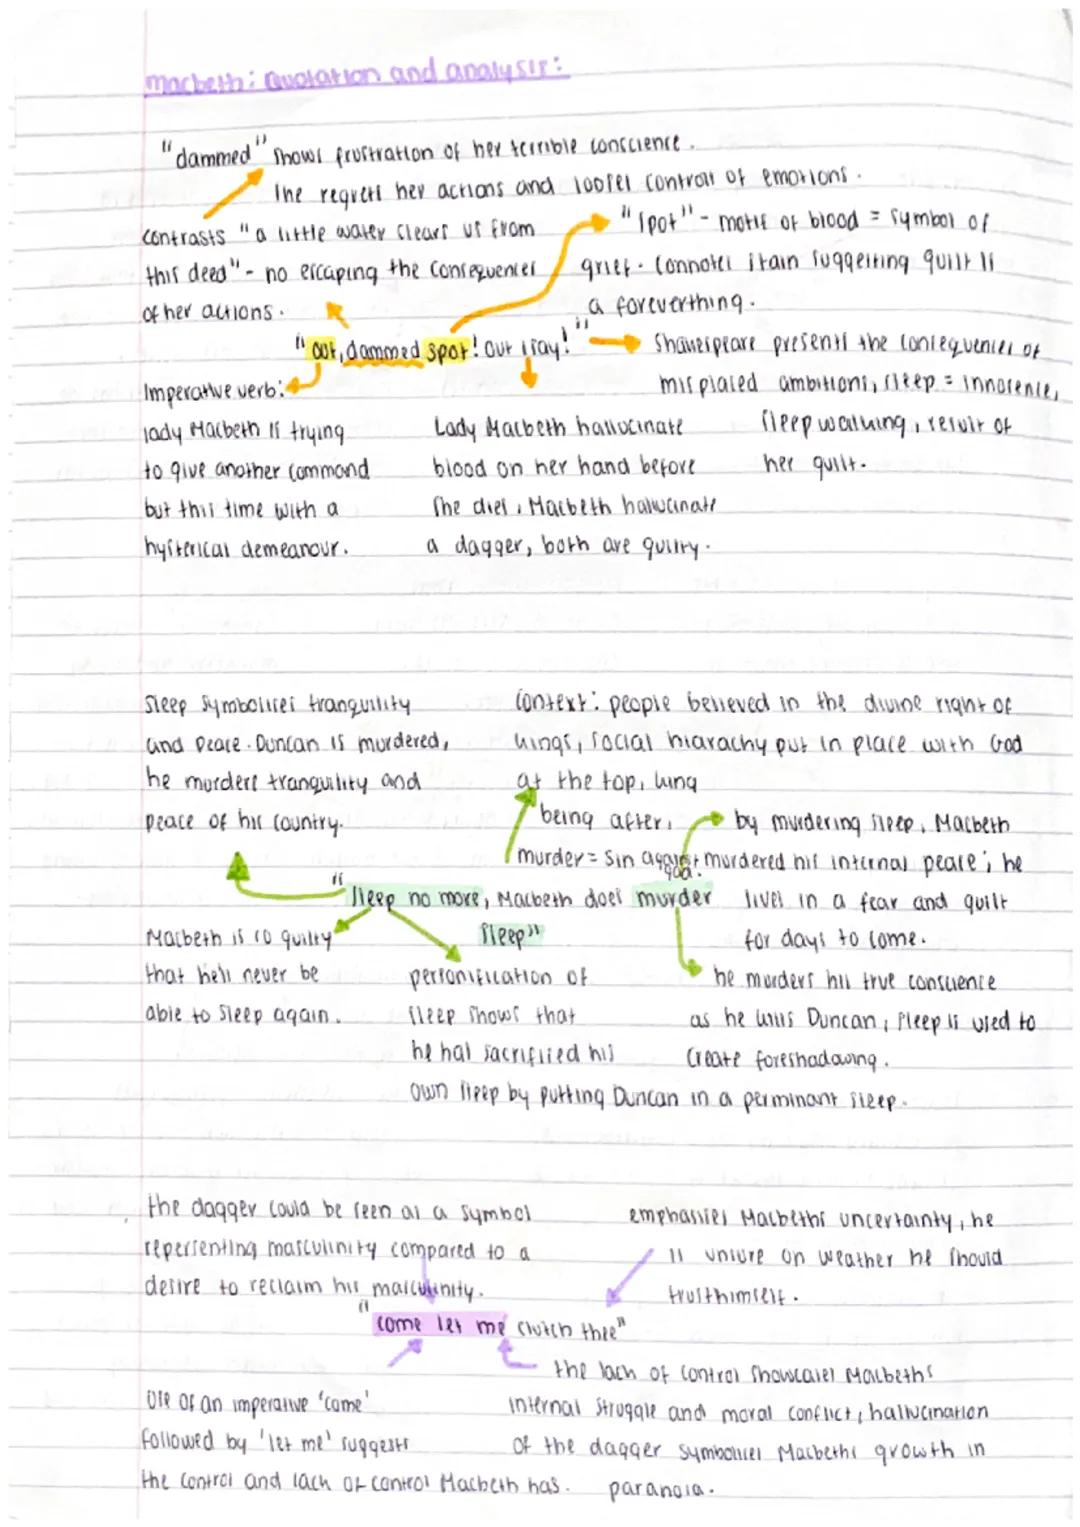 Macbeth: Quotation and analysis:
"dammed" shows frustration of her terrible conscience.
she regrets her actions and looses controll of emotions.
contrasts "a little water clears us from
this deed" - no escaping the consequences
of her actions.
"spot" - motif of blood = symbol of
grief. connotes stain suggesting guilt is
a foreverthing.
"out, dammed spot! out I say!"
Shakespeare presents the consequences of
misplaced ambitions, sleep = innocence,
sleep walking, result of
her guilt.
Imperative verb:
lady Macbeth is trying
to give another command
but this time with a
hysterical demeanour.
Lady Macbeth hallucinate
blood on her hand before
she dies, Macbeth hallucinate
a dagger, both are guilty.
Sleep symbolises tranquility
and peace. Duncan is murdered,
he murders tranquility and
peace of his country.
Context: people believed in the divine right of
kings, social hiarachy put in place with God
at the top, king
being after,
murder = sin against
god.
by murdering sleep, Macbeth
murdered his internal peace; he
lives in a fear and guilt
for days to come.
"Sleep no more, Macbeth does murder
sleep"
Macbeth is so guilty
that hell never be
able to sleep again.
personification of
sleep shows that
he has sacrificed his
own sleep by putting Duncan in a perminant sleep.
he murders his true conscience
as he kills Duncan, sleep is used to
create foreshadowing.
the dagger could be seen as a symbol
repersenting masculinity compared to a
desire to reclaim his masculinity.
emphasises Macbeths uncertainty, he
is unsure on weather he should
trusthimself.
"come let me clutch thee"
Use of an imperative 'come'
followed by 'let me' suggests
the control and lack of control Macbeth has.
the lack of control showcases Macbeths
internal struggle and moral conflict, hallucination
of the dagger symbolises Macbeths growth in
paranoia.